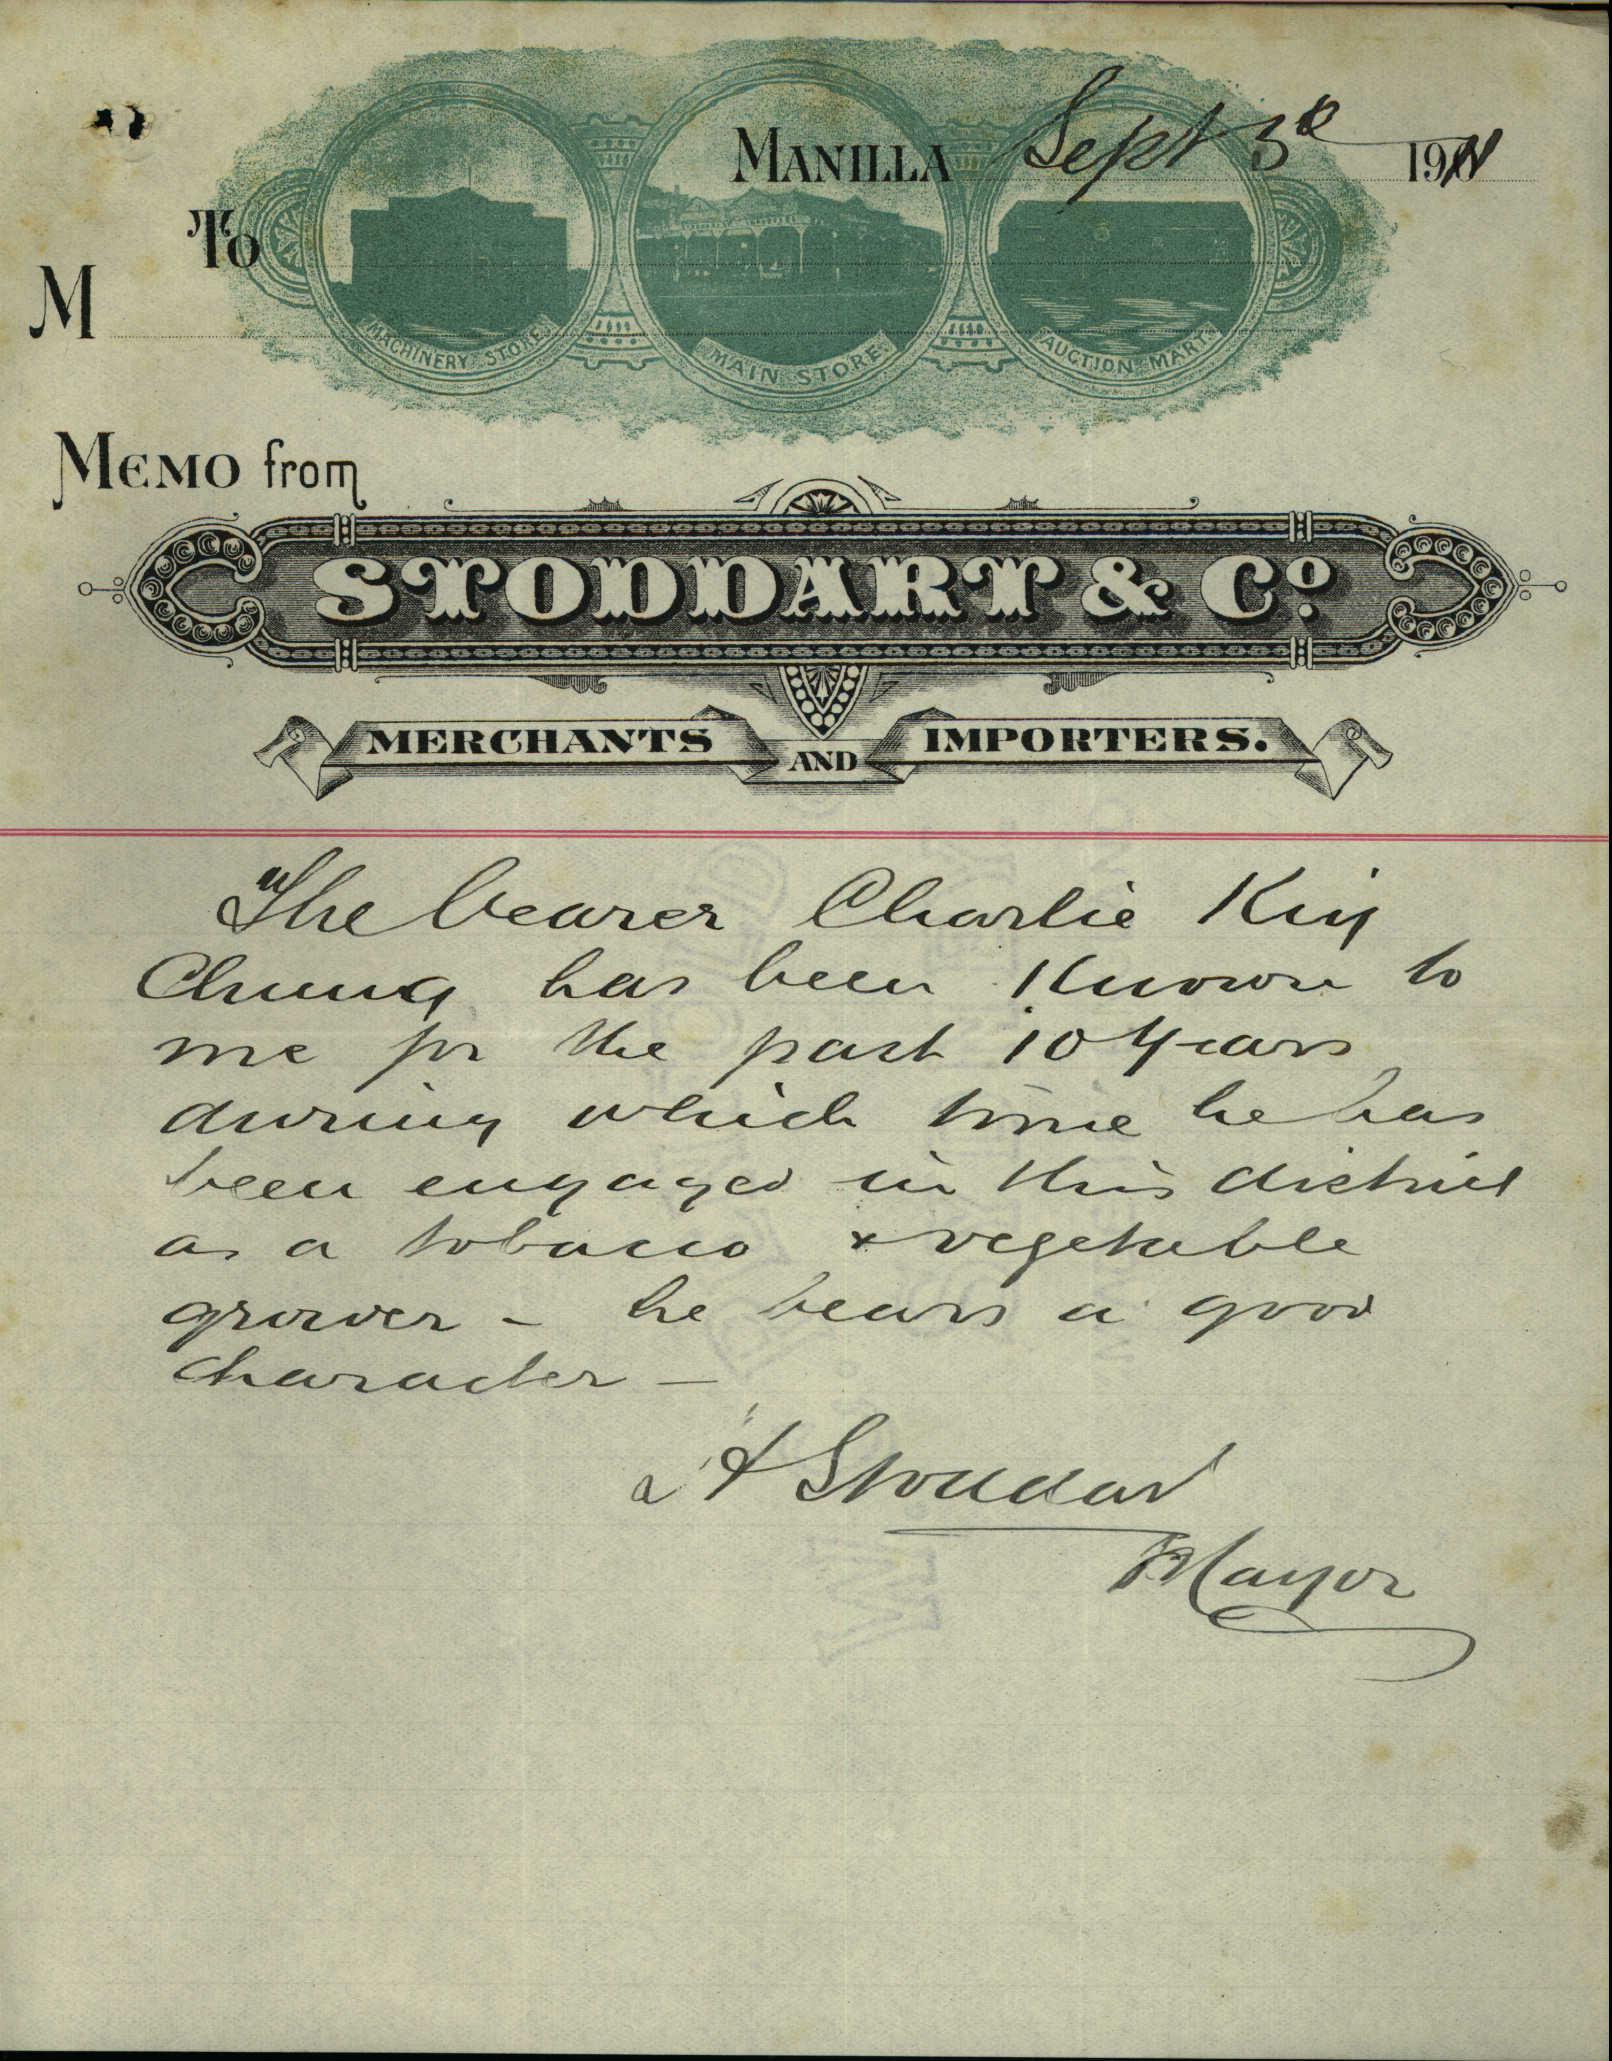 MANILLA Sept 3rd 1911
To
M
MACHINERY STORE
MAIN STORE
AUCTION MART
MEMO from
STODDART & Co.
MERCHANTS AND IMPORTERS.
The bearer Charlie King
Chung has been Known to
me for the past 10 Years
during which time he has
been engaged in this district
as a tobacco & vegetable
grower - he bears a good
character -
Stoddart
Mayor